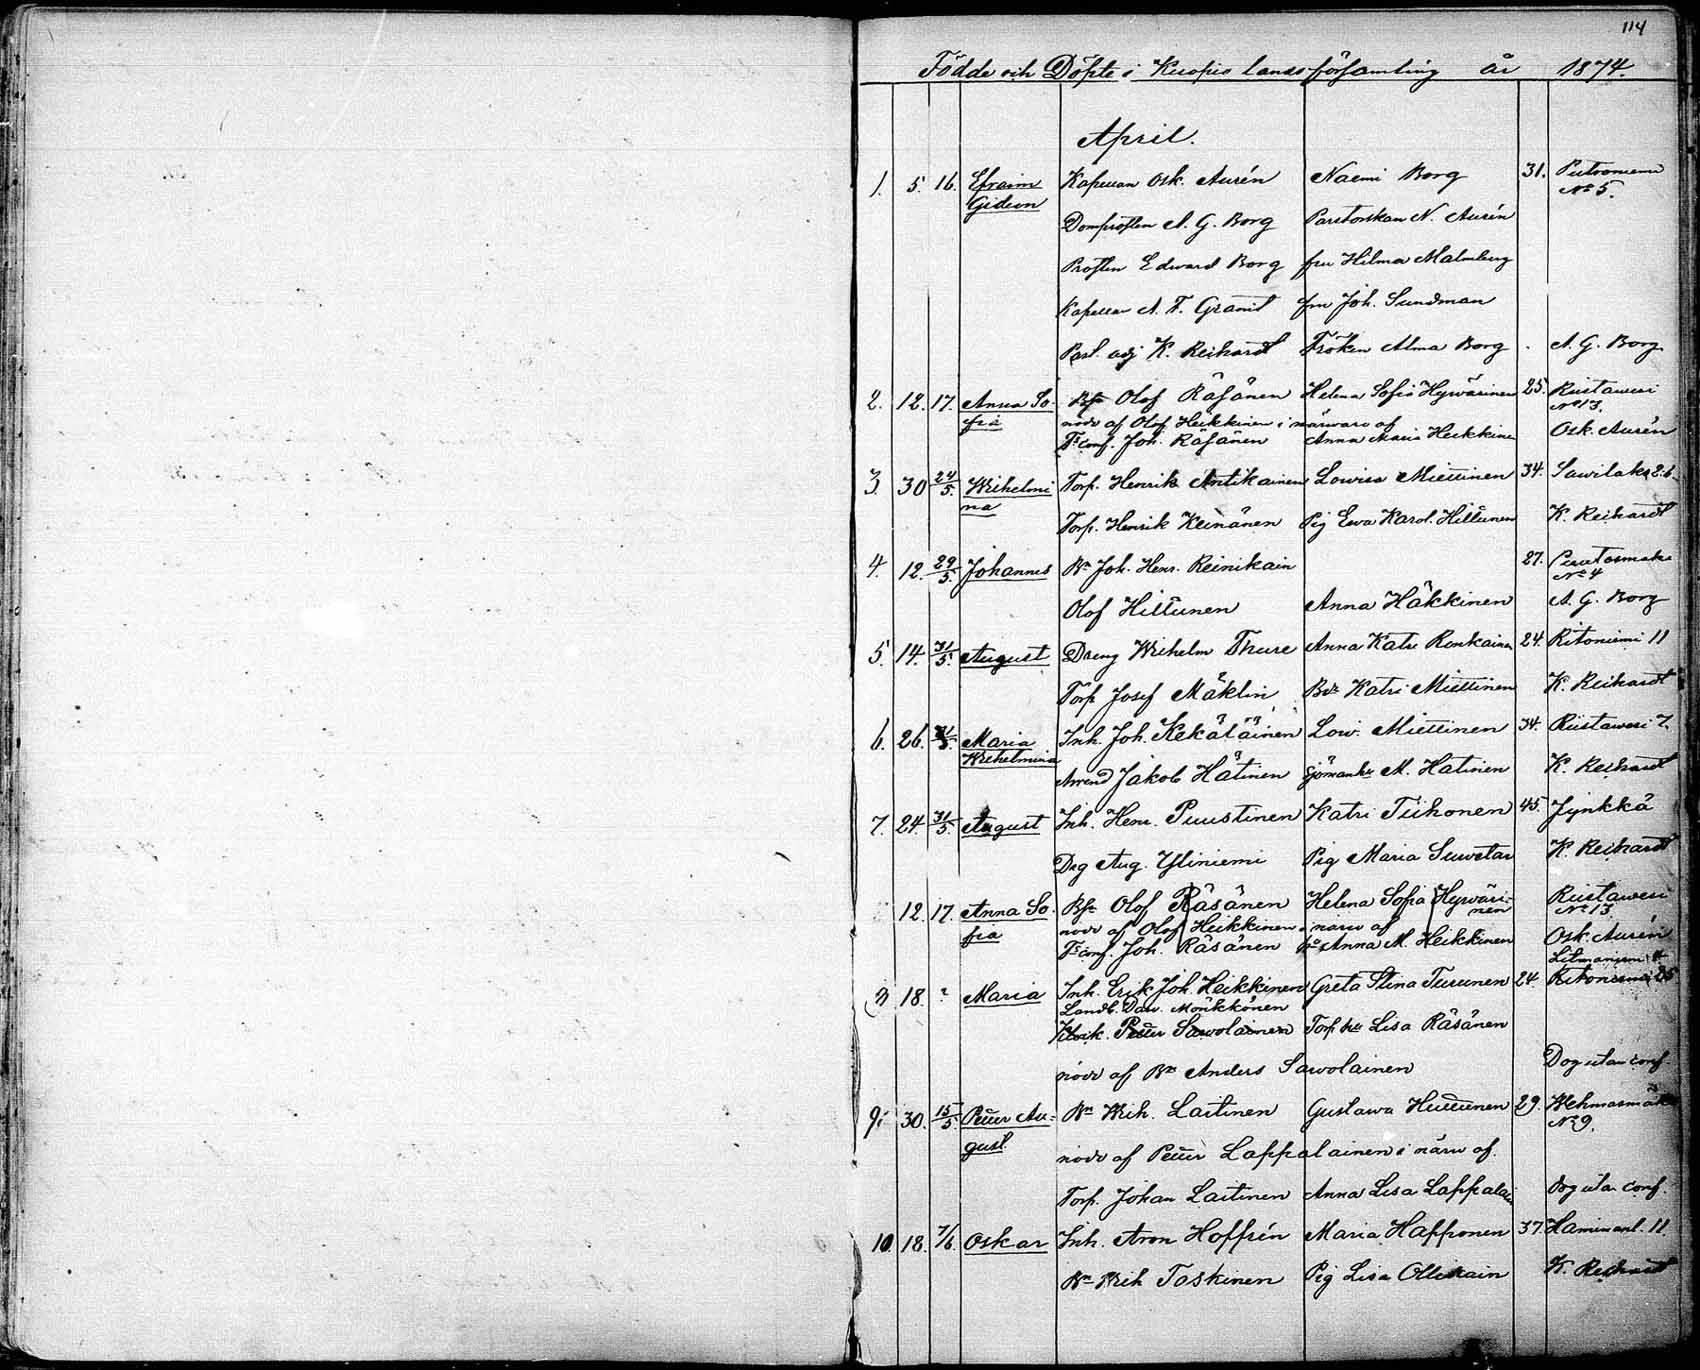 114
Födde och Döpte i Kuopio landsförsamling år 1874.
April.
1. 5. 16. Efraim Kapellan Osk. Aurén Naemi Borg 31. Putroniemi
Gideon No 5.
Domprosten A. G. Borg Pastorskan N. Aurén
Prosten Edward Borg fru Hilma Malmberg
Kapellan A. F. Granit fru Joh. Sundman
Past. adj K. Reihardt Fröken Alma Borg A. G. Borg
2. 12. 17. Anna So- Bsn Olof Räsänen Helena Sofia Hyvärinen 25. Riistavesi
No 13.
fia nöd af Olof Heikkinen i närvaro af
T. conf. Joh. Räsänen Anna Maria Heikkinen Osk. Aurén
3. 30 24/5. Wilhelmi Torp. Henrik Antikainen Lovisa Miettinen 34. Savilaks 2:6.
na
Torp. Henrik Keinänen Pig Eva Karol. Hiltunen K. Reihardt
4. 12. 29/5. Johannes Bn Joh. Henr. Reinikain 27.
No 4
Olof Hiltunen Anna Häkkinen A. G. Borg
5. 14. 31/5. August Dreng Wilhelm Thure Anna Katri Ronkainen 24. Ritoniemi 11
Torp Josef Mäklin Bdr Katri Miettinen K. Reihardt
6. 26. 31/5. Maria Inh. Joh. Kekäläinen Lov. Miettinen 34. Riistavesi 7.
Wilhelmina
Arrend Jakob Hätinen M. Hatinen K. Reihardt
7. 24. 31/5. August Inh. Henr. Puustinen Katri Tiihonen 45. Jynkkä
Drg Aug. Yliniemi Pig Maria Suvetar K. Reihardt
12. 17. Anna So- Bsn Olof Räsänen Helena Sofia Hyväri- Riistavesi
nen No 13
fia nöd af Olof Heikkinen i närv af
T. conf. Joh. Räsänen Anna M. Heikkinen Osk. Aurén
Litmaniemi 4
18. ? Maria Inh. Erik Joh. Heikkinen Greta Stina Turunen 24. Ritoniemi 25
Landb. Dav. Mönkkönen
Petter Savolainen Torp hu Lisa Räsänen
nöd af Bn Anders Savolainen Dog utan conf.
9. 30. 15/5. Petter Au- Bn Wilh. Laitinen Gustava Huttunen 29. Wehmasmäki
gust. No 9.
nöd af Petter Lappalainen i närv af.
Torp. Johan Laitinen Anna Lisa Lappalain dog utan conf.
10. 18. 7/6. Oskar Inh. Aron Hoffrén Maria Happonen 37. Haminanl. 11
Bn Wilh Toskinen Pig Lisa Ollikain K. Reihardt